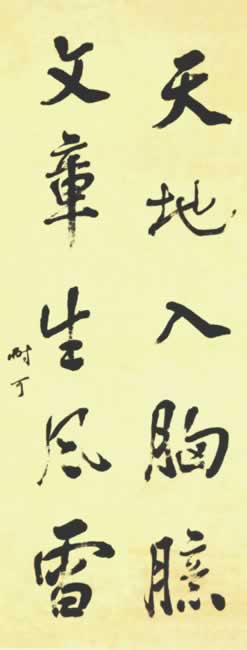 天地入胸臆
文章生风雷
可